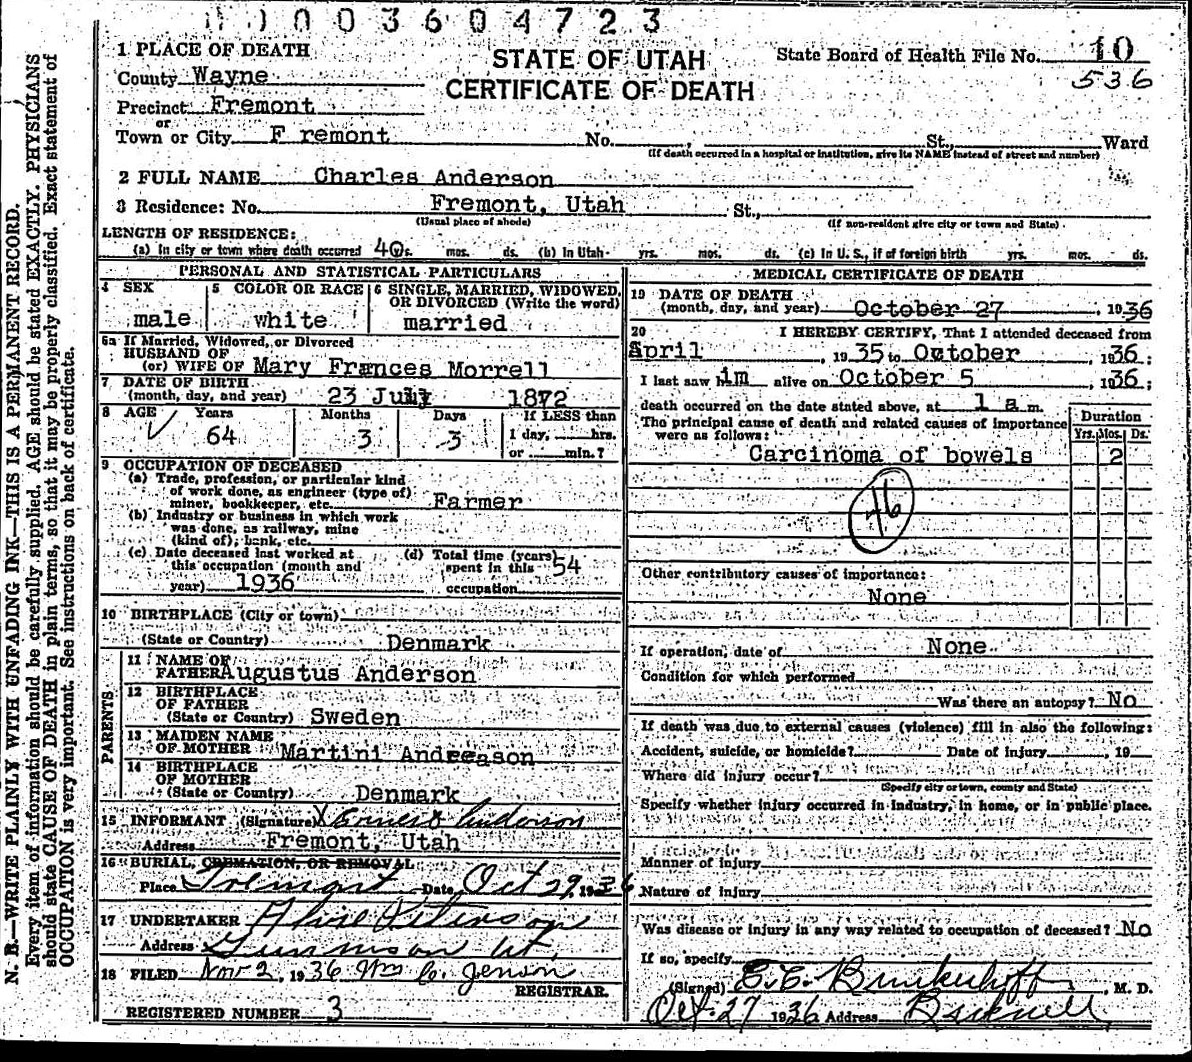 0003604723
STATE OF UTAH
CERTIFICATE OF DEATH
State Board of Health File No. 10
536
1 PLACE OF DEATH
County Wayne
Precinct Fremont
or
Town or City F remont No. , St., Ward
(If death occurred in a hospital or institution, give its NAME instead of street and number)
2 FULL NAME Charles Anderson
3 Residence: No. Fremont, Utah St.,
(Usual place of abode) (If non-resident give city or town and State)
LENGTH OF RESIDENCE:
(a) In city or town where death occurred 40 yrs. mos. ds. (b) In Utah yrs. mos. ds. (c) In U. S., if of foreign birth yrs. mos. ds.
PERSONAL AND STATISTICAL PARTICULARS
4 SEX
male
5 COLOR OR RACE
white
6 SINGLE, MARRIED, WIDOWED,
OR DIVORCED (Write the word)
married
6a If Married, Widowed, or Divorced
HUSBAND OF
(or) WIFE OF Mary Frances Morrell
7 DATE OF BIRTH
(month, day, and year) 23 July 1872
8 AGE Years Months Days If LESS than
64 3 3 1 day, hrs.
or min.?
9 OCCUPATION OF DECEASED
(a) Trade, profession, or particular kind
of work done, as engineer (type of)
miner, bookkeeper, etc. Farmer
(b) Industry or business in which work
was done, as railway, mine
(kind of), bank, etc.
(c) Date deceased last worked at
this occupation (month and
year) 1936
(d) Total time (years)
spent in this 54
occupation
10 BIRTHPLACE (City or town)
(State or Country) Denmark
PARENTS
11 NAME OF
FATHER Augustus Anderson
12 BIRTHPLACE
OF FATHER
(State or Country) Sweden
13 MAIDEN NAME
OF MOTHER Martini Andreason
14 BIRTHPLACE
OF MOTHER
(State or Country) Denmark
15 INFORMANT (Signature) X Ernest Anderson
Address Fremont, Utah
16 BURIAL, CREMATION, OR REMOVAL
Place Fremont Date Oct 29, 1936
17 UNDERTAKER Peterson
Address Gunnison Ut.
18 FILED Nov 2, 1936 Wm C. Jenson
REGISTRAR.
REGISTERED NUMBER 3
MEDICAL CERTIFICATE OF DEATH
19 DATE OF DEATH
(month, day, and year) October 27, 1936
20 I HEREBY CERTIFY, That I attended deceased from
April, 1935 to October, 1936;
I last saw him alive on October 5, 1936;
death occurred on the date stated above, at 1 a m.
The principal cause of death and related causes of importance
were as follows:
Duration
Yrs. Mos. Ds.
Carcinoma of bowels 2
46
Other contributory causes of importance:
None
If operation, date of None
Condition for which performed
Was there an autopsy? No
If death was due to external causes (violence) fill in also the following:
Accident, suicide, or homicide? Date of injury , 19
Where did injury occur?
(Specify city or town, county and State)
Specify whether injury occurred in industry, in home, or in public place.
Manner of injury
Nature of injury
Was disease or injury in any way related to occupation of deceased? No
If so, specify
(Signed) E. C. Brinkerhoff, M. D.
Oct 27 1936 Address Bicknell
N. B.—WRITE PLAINLY WITH UNFADING INK—THIS IS A PERMANENT RECORD.
Every item of information should be carefully supplied. AGE should be stated EXACTLY. PHYSICIANS
should state CAUSE OF DEATH in plain terms, so that it may be properly classified. Exact statement of
OCCUPATION is very important. See instructions on back of certificate.